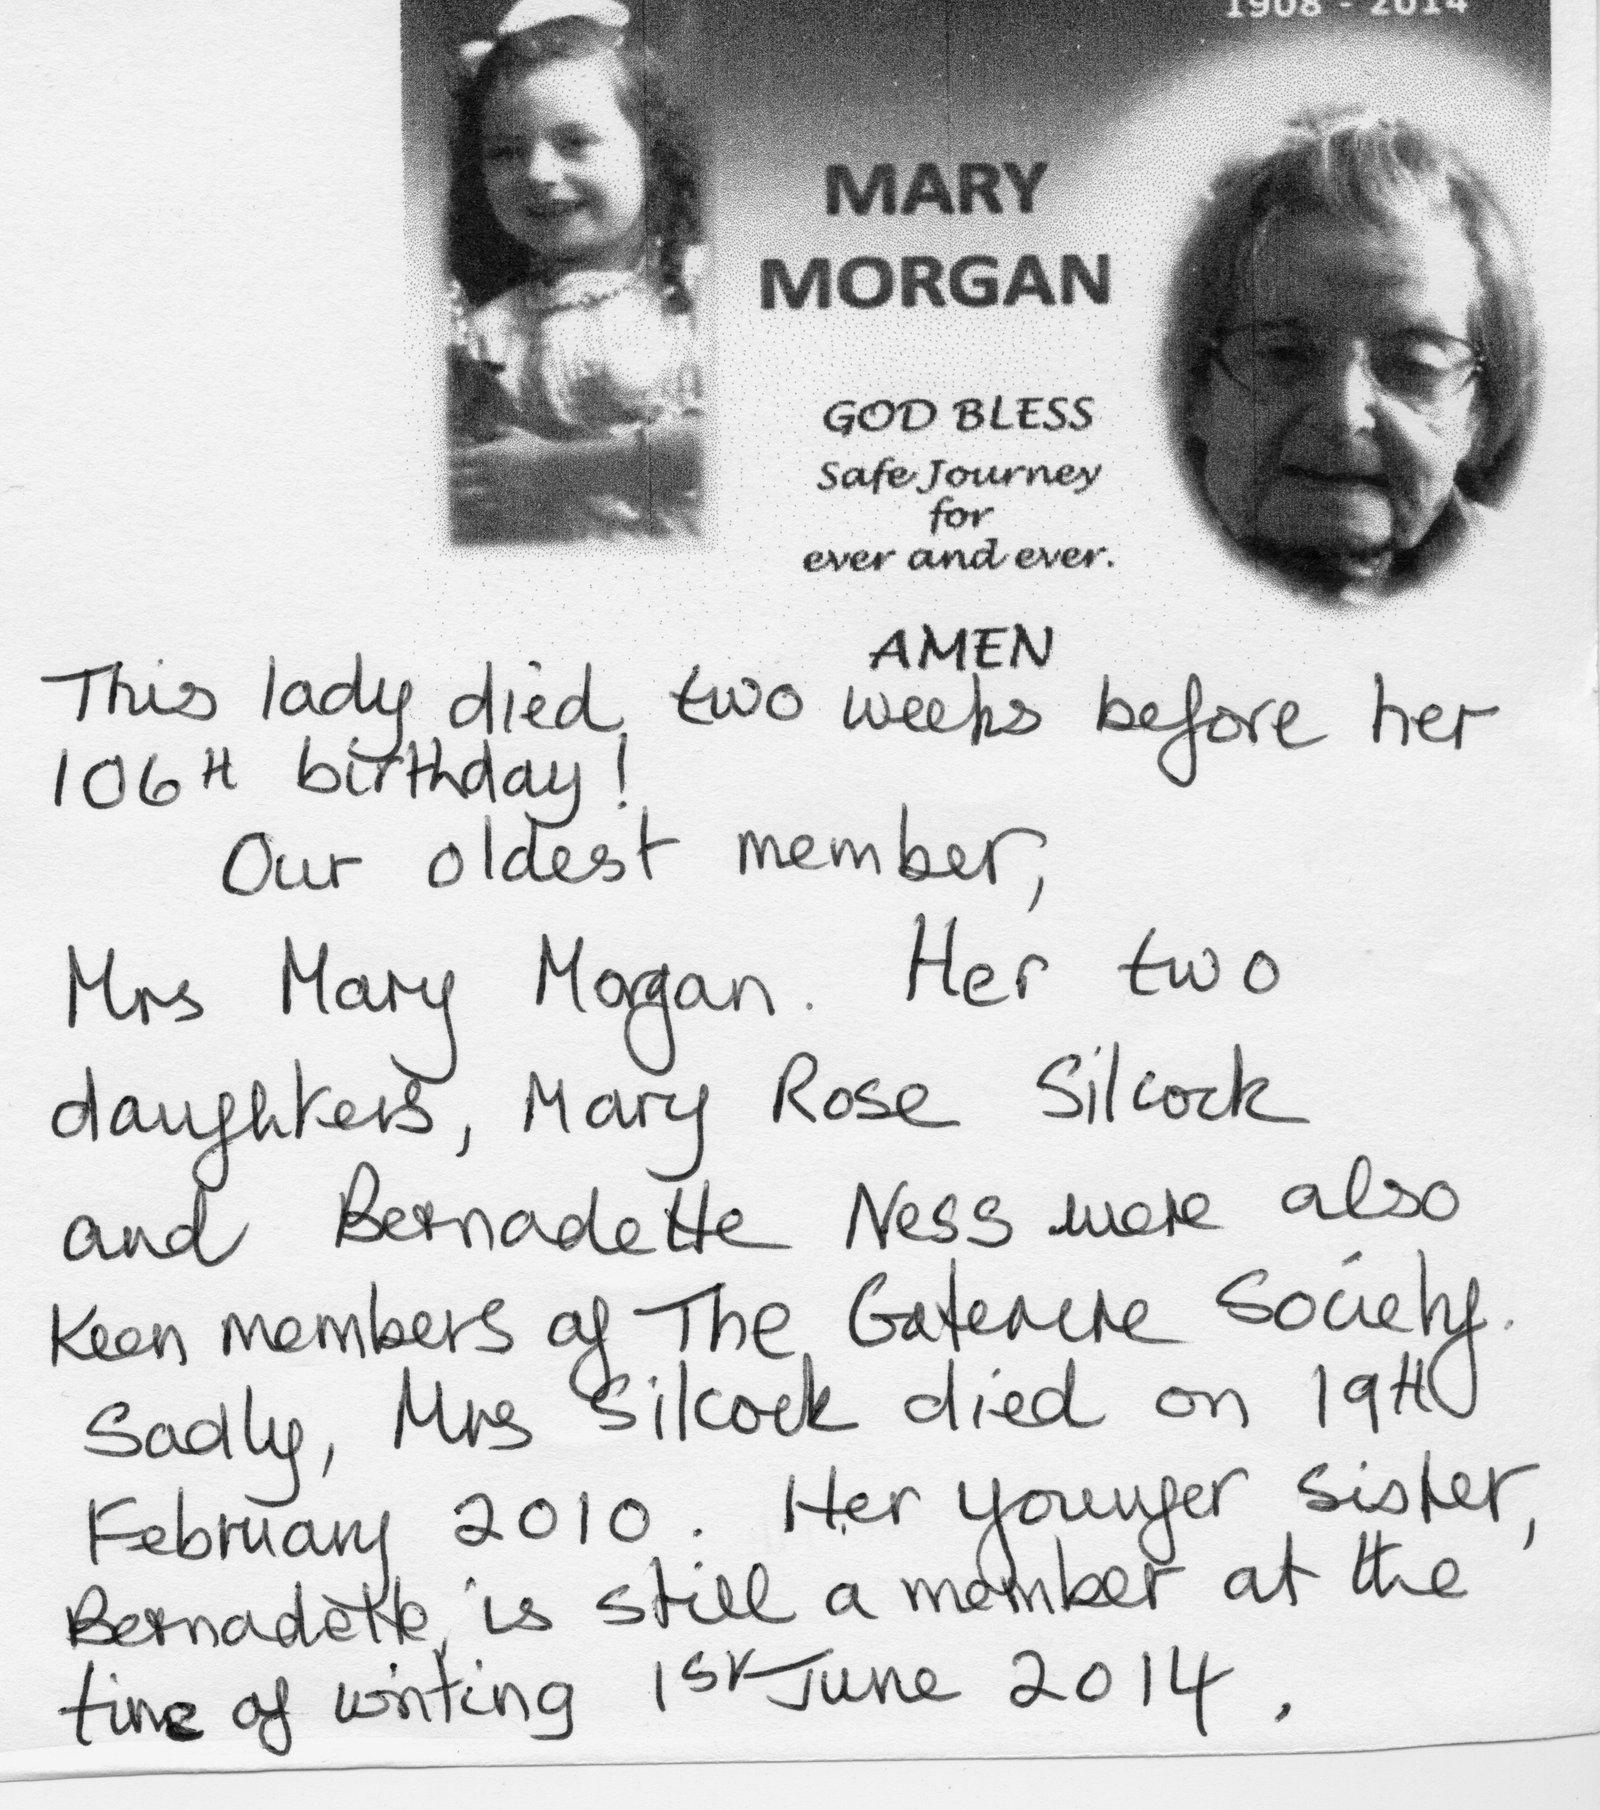 1908 - 2014
MARY
MORGAN
GOD BLESS
Safe Journey
for
ever and ever.
AMEN
This lady died two weeks before her
106TH birthday!
Our oldest member,
Mrs Mary Morgan. Her two
daughters, Mary Rose Silcock
and Bernadette Ness were also
Keen members of The Gateacre Society.
Sadly, Mrs Silcock died on 19TH
February 2010. Her younger sister,
Bernadette, is still a member at the
time of writing 1ST June 2014.